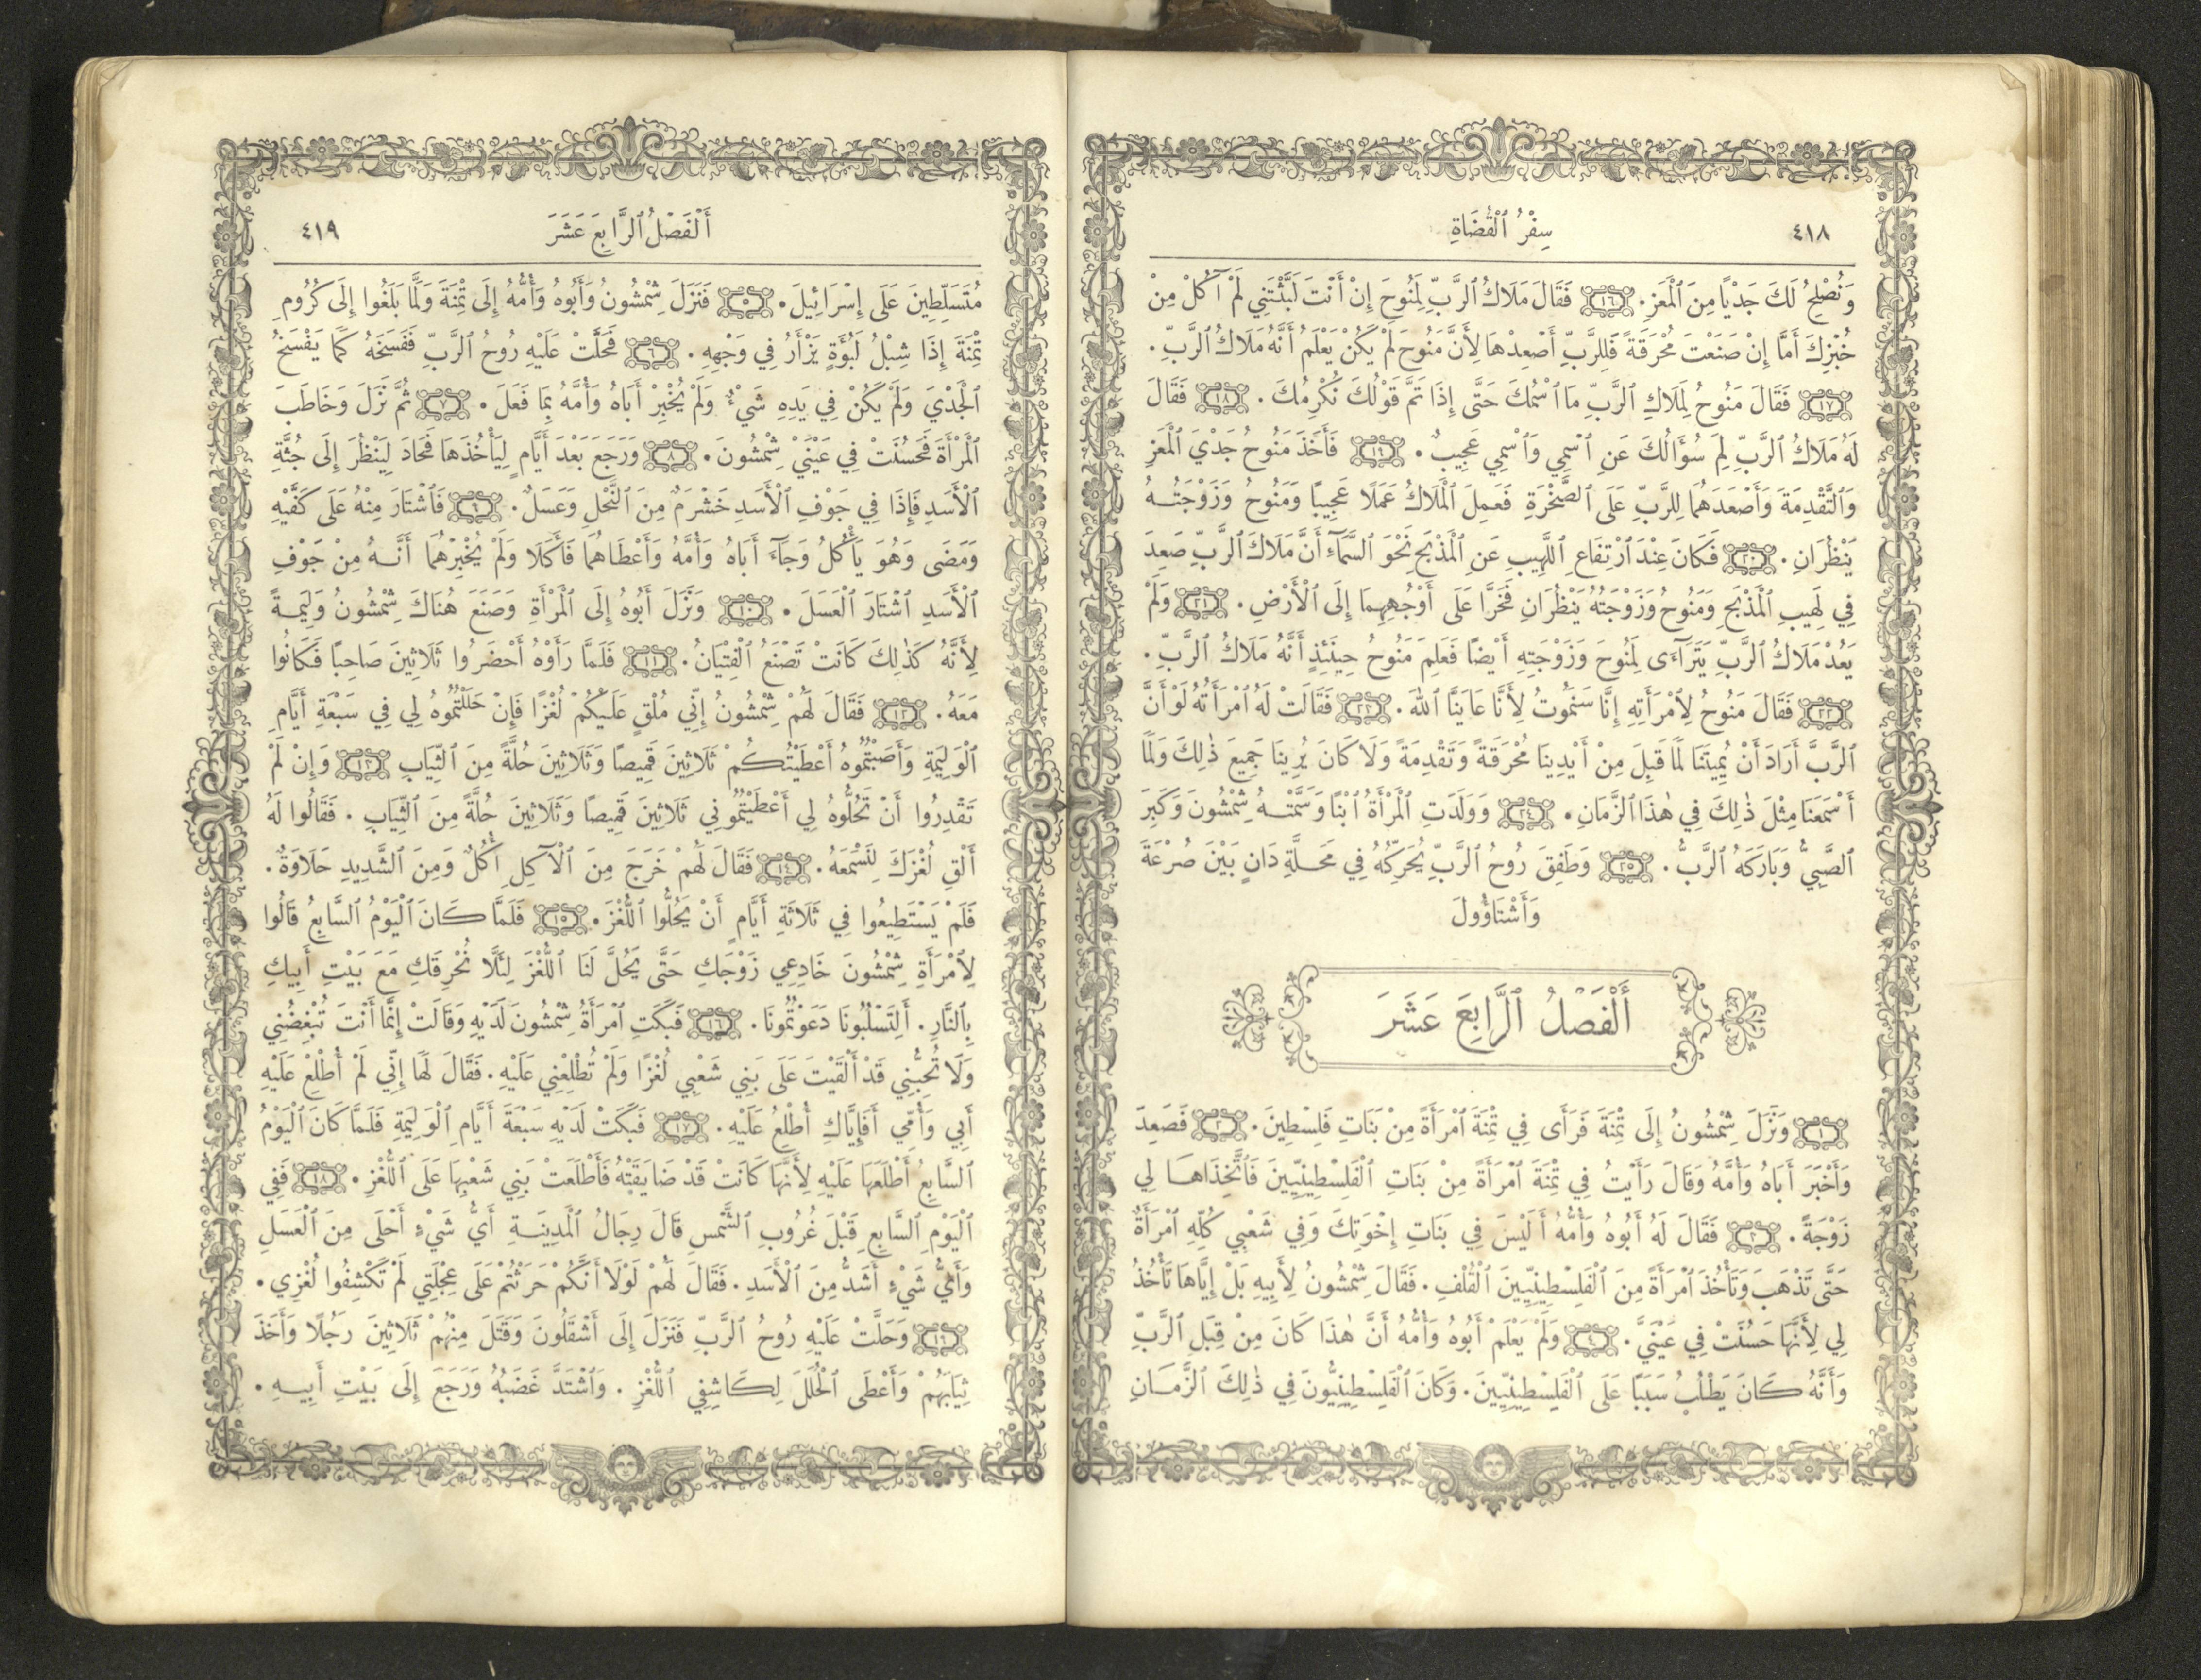 ٤١٨
سِفْرُ ٱلْقُضَاةِ
وَنُصْلِحُ لَكَ جَدْيًا مِنَ ٱلْمَعَزِ. ١٦ فَقَالَ مَلَاكُ ٱلرَّبِّ لِمَنُوحَ إِنْ أَنْتَ لَبَّثْتَنِي لَمْ آكُلْ مِنْ
خُبْزِكَ أَمَّا إِنْ صَنَعْتَ مُحْرَقَةً فَلِلرَّبِّ أَصْعِدْهَا لِأَنَّ مَنُوحَ لَمْ يَكُنْ يَعْلَمُ أَنَّهُ مَلَاكُ ٱلرَّبِّ.
١٧ فَقَالَ مَنُوحُ لِمَلَاكِ ٱلرَّبِّ مَا ٱسْمُكَ حَتَّى إِذَا تَمَّ قَوْلُكَ نُكْرِمُكَ. ١٨ فَقَالَ
لَهُ مَلَاكُ ٱلرَّبِّ لِمَ سُؤَالُكَ عَنِ ٱسْمِي وَٱسْمِي عَجِيبٌ. ١٩ فَأَخَذَ مَنُوحُ جَدْيَ ٱلْمَعَزِ
وَٱلتَّقْدِمَةَ وَأَصْعَدَهُمَا لِلرَّبِّ عَلَى ٱلصَّخْرَةِ فَعَمِلَ ٱلْمَلَاكُ عَمَلًا عَجِيبًا وَمَنُوحُ وَزَوْجَتُهُ
يَنْظُرَانِ. ٢٠ فَكَانَ عِنْدَ ٱرْتِفَاعِ ٱللَّهِيبِ عَنِ ٱلْمَذْبَحِ نَحْوَ ٱلسَّمَآءِ أَنَّ مَلَاكَ ٱلرَّبِّ صَعِدَ
فِي لَهِيبِ ٱلْمَذْبَحِ وَمَنُوحُ وَزَوْجَتُهُ يَنْظُرَانِ فَخَرَّا عَلَى أَوْجُهِهِمَا إِلَى ٱلْأَرْضِ. ٢١ وَلَمْ
يَعُدْ مَلَاكُ ٱلرَّبِّ يَتَرَآءَى لِمَنُوحَ وَزَوْجَتِهِ أَيْضًا فَعَلِمَ مَنُوحُ حِينَئِذٍ أَنَّهُ مَلَاكُ ٱلرَّبِّ.
٢٢ فَقَالَ مَنُوحُ لِٱمْرَأَتِهِ إِنَّا سَنَمُوتُ لِأَنَّا عَايَنَّا ٱللهَ. ٢٣ فَقَالَتْ لَهُ ٱمْرَأَتُهُ لَوْ أَنَّ
ٱلرَّبَّ أَرَادَ أَنْ يُمِيتَنَا لَمَا قَبِلَ مِنْ أَيْدِينَا مُحْرَقَةً وَتَقْدِمَةً وَلَا كَانَ يُرِينَا جَمِيعَ ذٰلِكَ وَلَمَا
أَسْمَعَنَا مِثْلَ ذٰلِكَ فِي هٰذَا ٱلزَّمَانِ. ٢٤ وَوَلَدَتِ ٱلْمَرْأَةُ ٱبْنًا وَسَمَّتْهُ شِمْشُونَ وَكَبِرَ
ٱلصَّبِيُّ وَبَارَكَهُ ٱلرَّبُّ. ٢٥ وَطَفِقَ رُوحُ ٱلرَّبِّ يُحَرِّكُهُ فِي مَحَلَّةِ دَانٍ بَيْنَ صُرْعَةَ
وَأَشْتَاؤُولَ
أَلْفَصْلُ ٱلرَّابِعَ عَشَرَ
١ وَنَزَلَ شِمْشُونُ إِلَى تِمْنَةَ فَرَأَى فِي تِمْنَةَ ٱمْرَأَةً مِنْ بَنَاتِ فَلِسْطِينَ. ٢ فَصَعِدَ
وَأَخْبَرَ أَبَاهُ وَأُمَّهُ وَقَالَ رَأَيْتُ فِي تِمْنَةَ ٱمْرَأَةً مِنْ بَنَاتِ ٱلْفَلِسْطِينِيِّينَ فَٱتَّخِذَاهَا لِي
زَوْجَةً. ٣ فَقَالَ لَهُ أَبُوهُ وَأُمُّهُ أَلَيْسَ فِي بَنَاتِ إِخْوَتِكَ وَفِي شَعْبِي كُلِّهِ ٱمْرَأَةٌ
حَتَّى تَذْهَبَ وَتَأْخُذَ ٱمْرَأَةً مِنَ ٱلْفَلِسْطِينِيِّينَ ٱلْقُلْفِ. فَقَالَ شِمْشُونُ لِأَبِيهِ بَلْ إِيَّاهَا تَأْخُذُ
لِي لِأَنَّهَا حَسُنَتْ فِي عَيْنَيَّ. ٤ وَلَمْ يَعْلَمْ أَبُوهُ وَأُمُّهُ أَنَّ هٰذَا كَانَ مِنْ قِبَلِ ٱلرَّبِّ
وَأَنَّهُ كَانَ يَطْلُبُ سَبَبًا عَلَى ٱلْفَلِسْطِينِيِّينَ. وَكَانَ ٱلْفَلِسْطِينِيُّونَ فِي ذٰلِكَ ٱلزَّمَانِ
أَلْفَصْلُ ٱلرَّابِعَ عَشَرَ
٤١٩
مُتَسَلِّطِينَ عَلَى إِسْرَائِيلَ. ٥ فَنَزَلَ شِمْشُونُ وَأَبُوهُ وَأُمُّهُ إِلَى تِمْنَةَ وَلَمَّا بَلَغُوا إِلَى كُرُومِ
تِمْنَةَ إِذَا شِبْلُ لَبُؤَةٍ يَزْأَرُ فِي وَجْهِهِ. ٦ فَحَلَّتْ عَلَيْهِ رُوحُ ٱلرَّبِّ فَفَسَخَهُ كَمَا يَفْسَخُ
ٱلْجَدْيَ وَلَمْ يَكُنْ فِي يَدِهِ شَيْءٌ وَلَمْ يُخْبِرْ أَبَاهُ وَأُمَّهُ بِمَا فَعَلَ. ٧ ثُمَّ نَزَلَ وَخَاطَبَ
ٱلْمَرْأَةَ فَحَسُنَتْ فِي عَيْنَيْ شِمْشُونَ. ٨ وَرَجَعَ بَعْدَ أَيَّامٍ لِيَأْخُذَهَا فَحَادَ لِيَنْظُرَ إِلَى جُثَّةِ
ٱلْأَسَدِ فَإِذَا فِي جَوْفِ ٱلْأَسَدِ خَشْرَمٌ مِنَ ٱلنَّحْلِ وَعَسَلٌ. ٩ فَٱشْتَارَ مِنْهُ عَلَى كَفَّيْهِ
وَمَضَى وَهُوَ يَأْكُلُ وَجَآءَ أَبَاهُ وَأُمَّهُ وَأَعْطَاهُمَا فَأَكَلَا وَلَمْ يُخْبِرْهُمَا أَنَّهُ مِنْ جَوْفِ
ٱلْأَسَدِ ٱشْتَارَ ٱلْعَسَلَ. ١٠ وَنَزَلَ أَبُوهُ إِلَى ٱلْمَرْأَةِ وَصَنَعَ هُنَاكَ شِمْشُونُ وَلِيمَةً
لِأَنَّهُ كَذٰلِكَ كَانَتْ تَصْنَعُ ٱلْفِتْيَانُ. ١١ فَلَمَّا رَأَوْهُ أَحْضَرُوا ثَلَاثِينَ صَاحِبًا فَكَانُوا
مَعَهُ. ١٢ فَقَالَ لَهُمْ شِمْشُونُ إِنِّي مُلْقٍ عَلَيْكُمْ لُغْزًا فَإِنْ حَلَلْتُمُوهُ لِي فِي سَبْعَةِ أَيَّامِ
ٱلْوَلِيمَةِ وَأَصَبْتُمُوهُ أَعْطَيْتُكُمْ ثَلَاثِينَ قَمِيصًا وَثَلَاثِينَ حُلَّةً مِنَ ٱلثِّيَابِ ١٣ وَإِنْ لَمْ
تَقْدِرُوا أَنْ تَحُلُّوهُ لِي أَعْطَيْتُمُونِي ثَلَاثِينَ قَمِيصًا وَثَلَاثِينَ حُلَّةً مِنَ ٱلثِّيَابِ. فَقَالُوا لَهُ
أَلْقِ لُغْزَكَ لِنَسْمَعَهُ. ١٤ فَقَالَ لَهُمْ خَرَجَ مِنَ ٱلْآكِلِ أُكُلٌ وَمِنَ ٱلشَّدِيدِ حَلَاوَةٌ.
فَلَمْ يَسْتَطِيعُوا فِي ثَلَاثَةِ أَيَّامٍ أَنْ يَحُلُّوا ٱللُّغْزَ. ١٥ فَلَمَّا كَانَ ٱلْيَوْمُ ٱلسَّابِعُ قَالُوا
لِٱمْرَأَةِ شِمْشُونَ خَادِعِي زَوْجَكِ حَتَّى يَحُلَّ لَنَا ٱللُّغْزَ لِئَلَّا نُحْرِقَكِ مَعَ بَيْتِ أَبِيكِ
بِٱلنَّارِ. أَلِتَسْلُبُونَا دَعَوْتُمُونَا. ١٦ فَبَكَتِ ٱمْرَأَةُ شِمْشُونَ لَدَيْهِ وَقَالَتْ إِنَّمَا أَنْتَ تُبْغِضُنِي
وَلَا تُحِبُّنِي قَدْ أَلْقَيْتَ عَلَى بَنِي شَعْبِي لُغْزًا وَلَمْ تُطْلِعْنِي عَلَيْهِ. فَقَالَ لَهَا إِنِّي لَمْ أُطْلِعْ عَلَيْهِ
أَبِي وَأُمِّي أَفَإِيَّاكِ أُطْلِعُ عَلَيْهِ. ١٧ فَبَكَتْ لَدَيْهِ سَبْعَةَ أَيَّامِ ٱلْوَلِيمَةِ فَلَمَّا كَانَ ٱلْيَوْمُ
ٱلسَّابِعُ أَطْلَعَهَا عَلَيْهِ لِأَنَّهَا كَانَتْ قَدْ ضَايَقَتْهُ فَأَطْلَعَتْ بَنِي شَعْبِهَا عَلَى ٱللُّغْزِ. ١٨ فَفِي
ٱلْيَوْمِ ٱلسَّابِعِ قَبْلَ غُرُوبِ ٱلشَّمْسِ قَالَ رِجَالُ ٱلْمَدِينَةِ أَيُّ شَيْءٍ أَحْلَى مِنَ ٱلْعَسَلِ
وَأَيُّ شَيْءٍ أَشَدُّ مِنَ ٱلْأَسَدِ. فَقَالَ لَهُمْ لَوْلَا أَنَّكُمْ حَرَثْتُمْ عَلَى عِجْلَتِي لَمْ تَكْشِفُوا لُغْزِي.
١٩ وَحَلَّتْ عَلَيْهِ رُوحُ ٱلرَّبِّ فَنَزَلَ إِلَى أَشْقَلُونَ وَقَتَلَ مِنْهُمْ ثَلَاثِينَ رَجُلًا وَأَخَذَ
ثِيَابَهُمْ وَأَعْطَى ٱلْحُلَلَ لِكَاشِفِي ٱللُّغْزِ. وَٱشْتَدَّ غَضَبُهُ وَرَجَعَ إِلَى بَيْتِ أَبِيهِ.